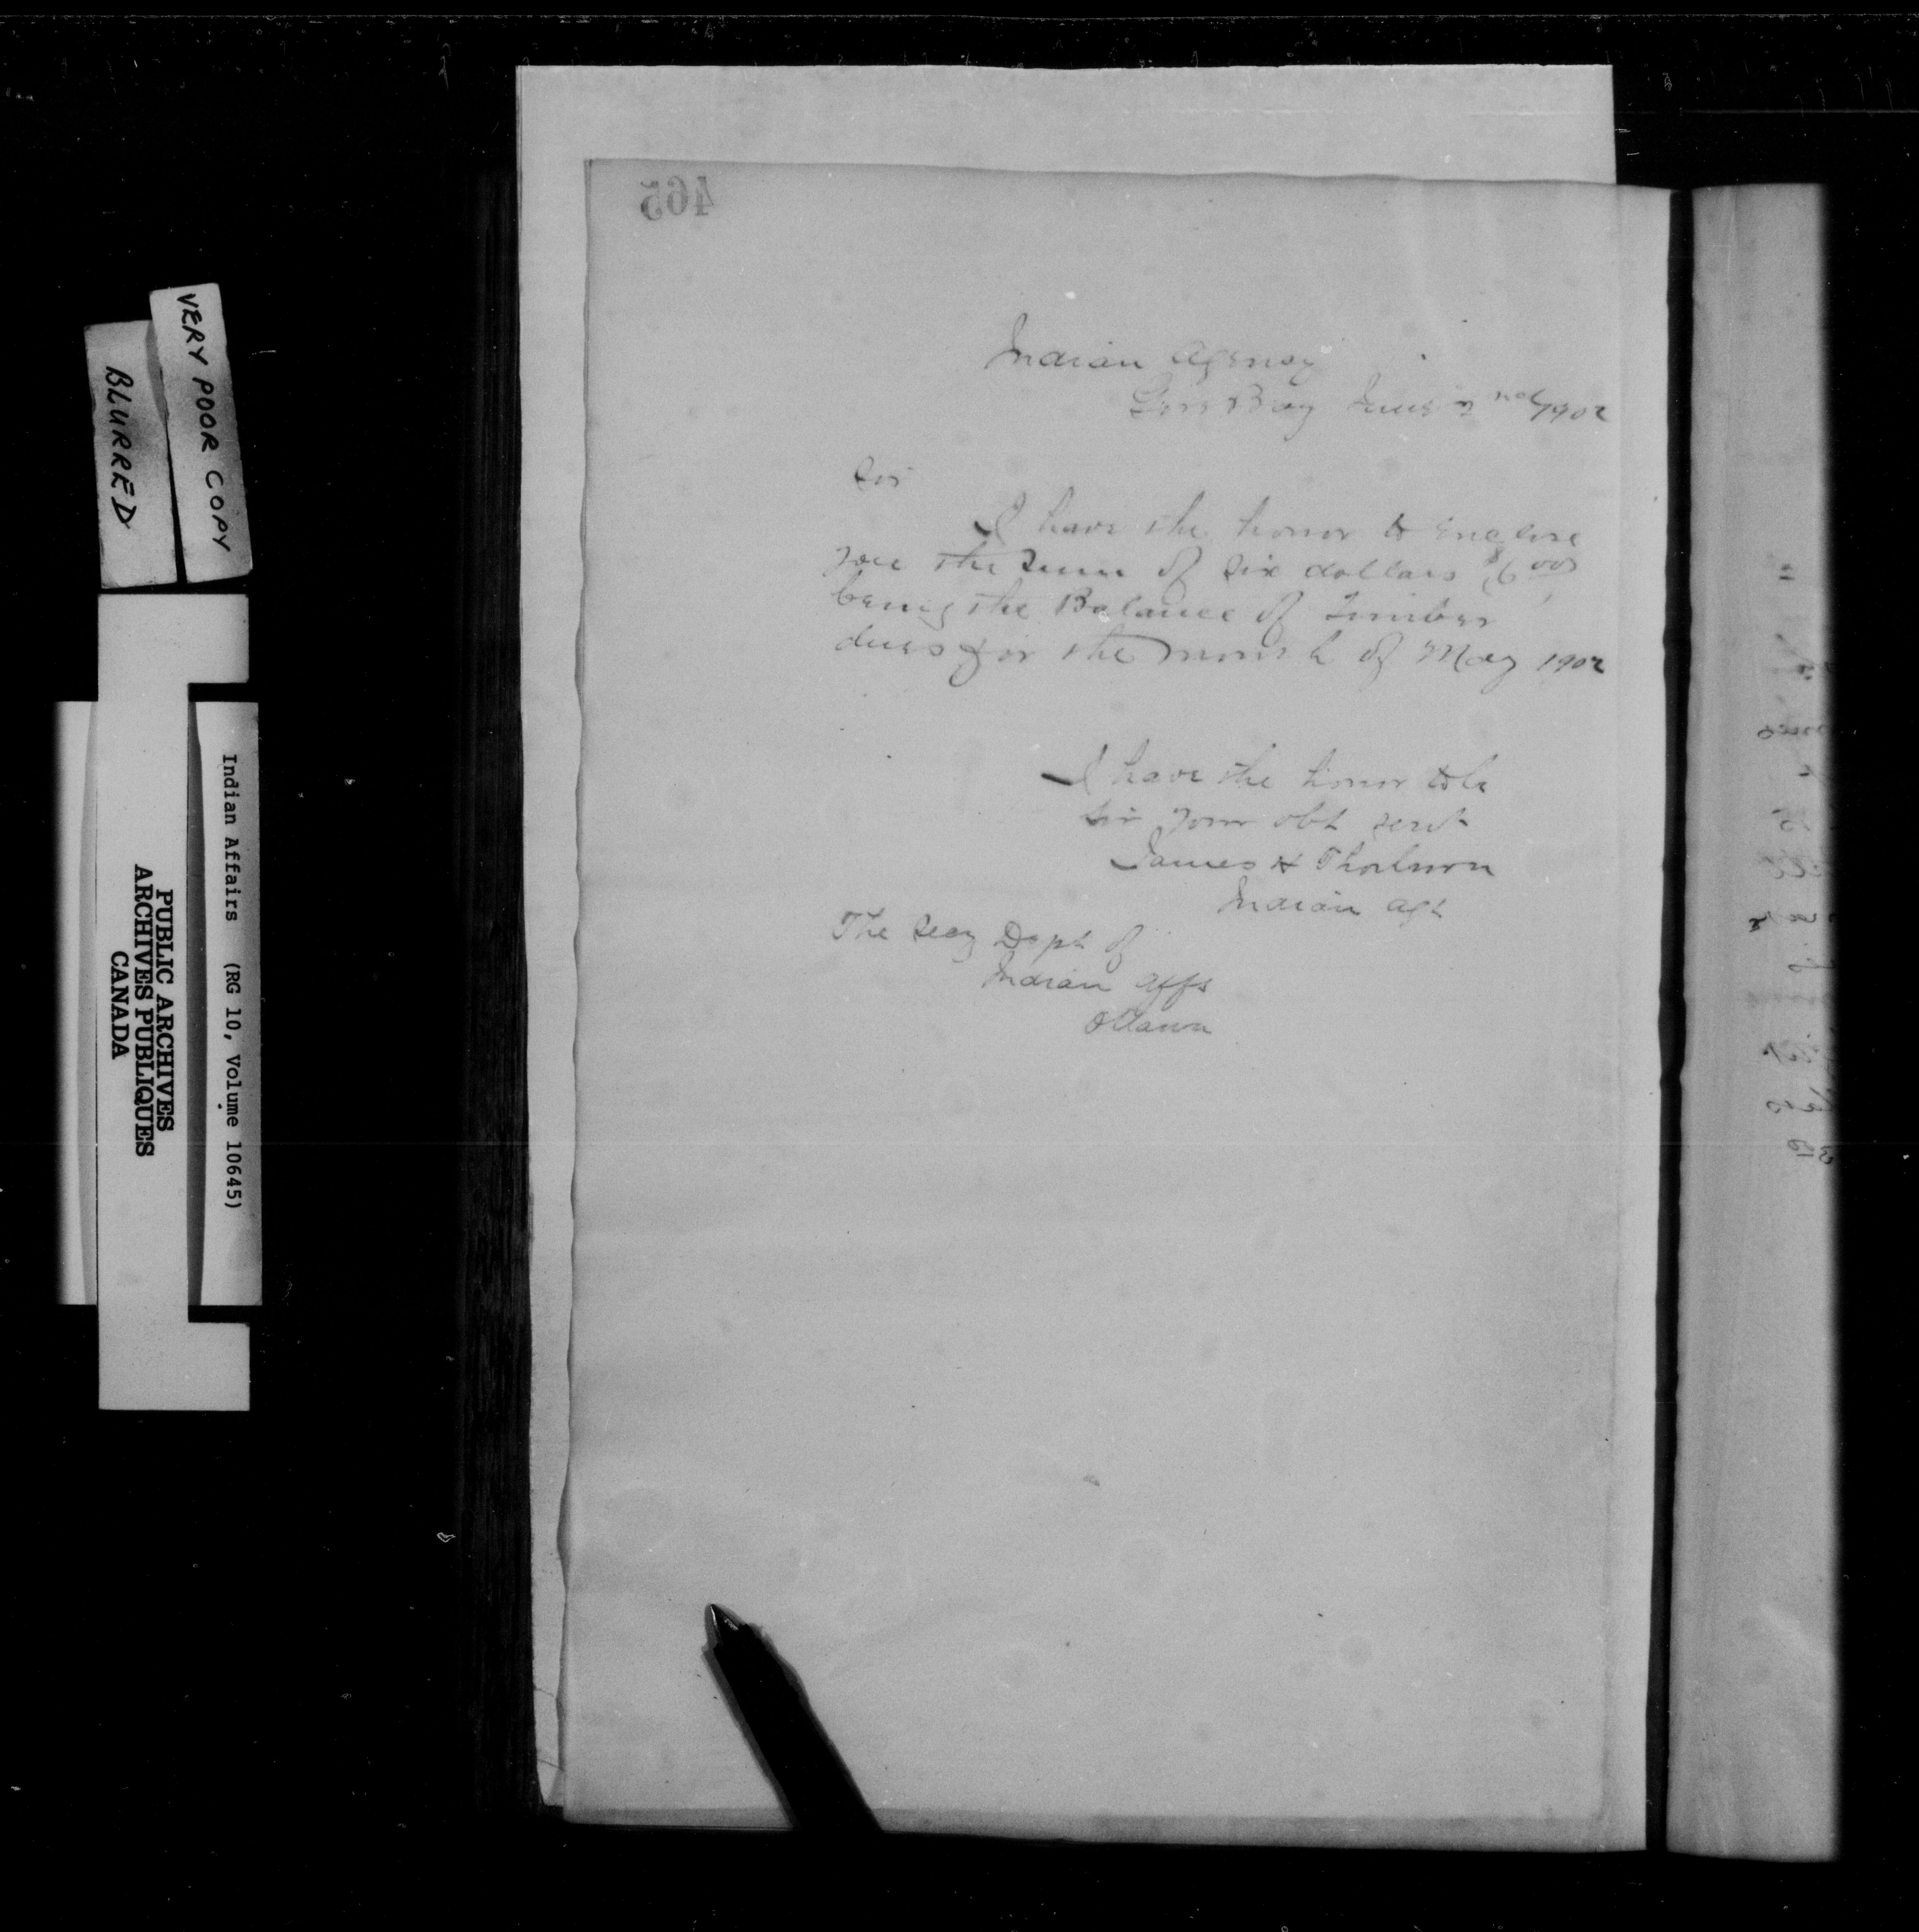 465
Indian Agency
Gore Bay June 2nd/1902
Sir
I have the honor to enclose
you the Sum of Six dollars $6.00
being the Balance of Timber
dues for the month of May 1902
I have the honor to be
Sir your obt servt
James H Thorburn
Indian Agt
The Secy Dept of
Indian Affs
Ottawa
VERY POOR COPY
BLURRED
Indian Affairs (RG 10, Volume 10645)
PUBLIC ARCHIVES
ARCHIVES PUBLIQUES
CANADA